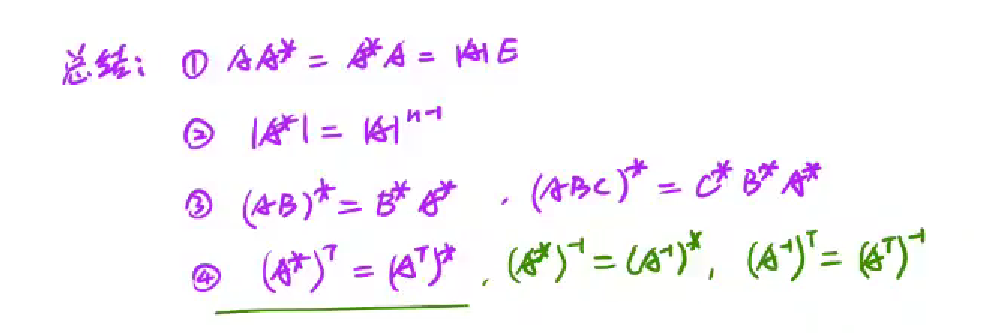 总结: ① AA* = A*A = |A|E
② |A*| = |A|ⁿ⁻¹
③ (AB)* = B*A* , (ABC)* = C*B*A*
④ (A*)ᵀ = (Aᵀ)* , (A*)⁻¹ = (A⁻¹)* , (A⁻¹)ᵀ = (Aᵀ)⁻¹